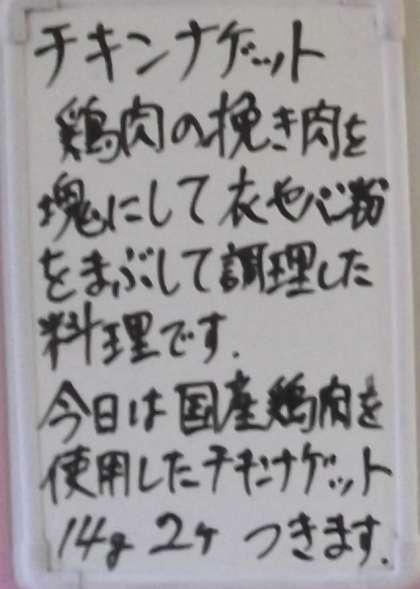 チキンナゲット
鶏肉の挽き肉を
塊にして衣やパン粉
をまぶして調理した
料理です.
今日は国産鶏肉を
使用したチキンナゲット
14g 2ケ つきます.